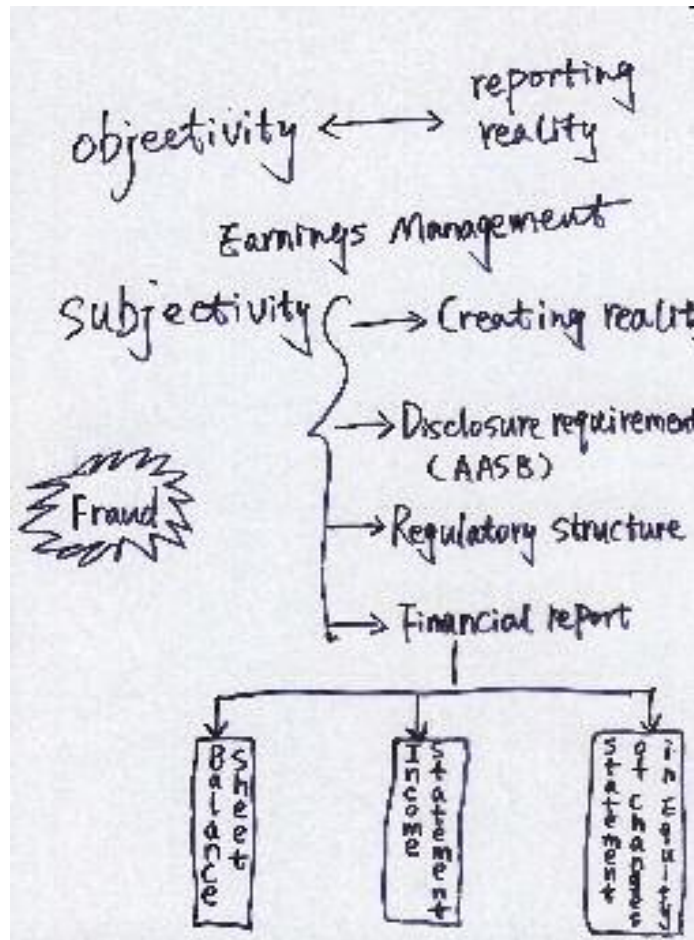 reporting
objectivity ⟷ reality
Earnings Management
Subjectivity → Creating reality
→ Disclosure requirement
(AASB)
Fraud
→ Regulatory structure
→ Financial report
Balance
Sheet
Income
Statement
statement
of changes
in Equity